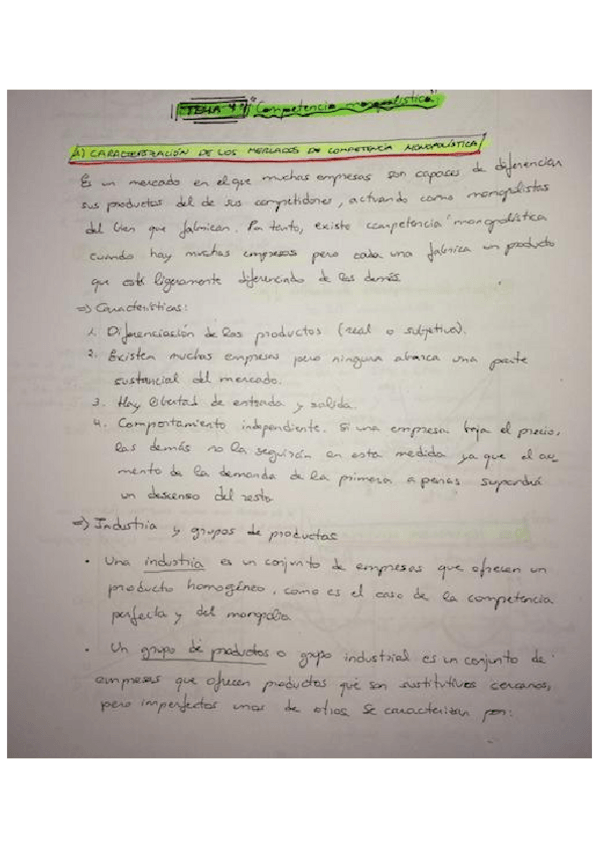 TEMA 4: "Competencia monopolística"
A) CARACTERIZACIÓN DE LOS MERCADOS EN COMPETENCIA MONOPOLÍSTICA
Es un mercado en el que muchas empresas son capaces de diferenciar
sus productos del de sus competidores, actuando como monopolistas
del bien que fabrican. Por tanto, existe competencia monopolística
cuando hay muchas empresas pero cada una fabrica un producto
que está ligeramente diferenciado de los demás.
=> Características:
1. Diferenciación de los productos (real o subjetiva).
2. Existen muchas empresas pero ninguna abarca una parte
sustancial del mercado.
3. Hay libertad de entrada y salida.
4. Comportamiento independiente. Si una empresa baja el precio,
las demás no la seguirán en esta medida ya que el au-
mento de la demanda de la primera apenas supondrá
un descenso del resto.
=> Industria y grupos de productos
• Una industria es un conjunto de empresas que ofrecen un
producto homogéneo, como es el caso de la competencia
perfecta y del monopolio.
• Un grupo de productos o grupo industrial es un conjunto de
empresas que ofrecen productos que son sustitutivos cercanos,
pero imperfectos unos de otros. Se caracterizan por: